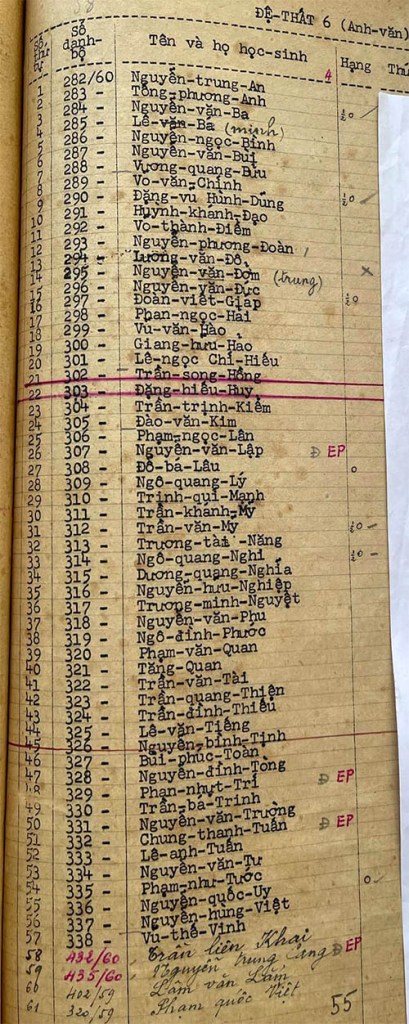 ĐỆ-THẤT 6 (Anh-văn)
Số thứ tự Số danh-bộ Tên và họ học-sinh Hạng Thứ
1 282/60 Nguyễn-trung-An
2 283 - Tống-phương-Anh
3 284 - Nguyễn-văn-Ba
4 285 - Lê-văn-Ba (minh)
5 286 - Nguyễn-ngọc-Bính
6 287 - Nguyễn-văn-Bùi
7 288 - Vương-quang-Bửu
8 289 - Võ-văn-Chính
9 290 - Đặng-vũ Hùnh-Dũng
10 291 - Huỳnh-khanh-Đạo
11 292 - Võ-thành-Điểm
12 293 - Nguyễn-phương-Đoàn
13 294 - Lương-văn-Đô
14 295 - Nguyễn-văn-Đờm (trung)
15 296 - Nguyễn-văn-Đực
16 297 - Đoàn-viết-Giap
17 298 - Phan-ngọc-Hải
18 299 - Vũ-văn-Hào
19 300 - Giang-hữu-Hạo
20 301 - Lê-ngọc Chí-Hiếu
21 302 - Trần-song-Hồng
22 303 - Đặng-hiếu-Huy
23 304 - Trần-trịnh-Kiếm
24 305 - Đào-văn-Kim
25 306 - Phạm-ngọc-Lân
26 307 - Nguyễn-văn-Lập Đ EP
27 308 - Đỗ-bá-Lâu
28 309 - Ngô-quang-Lý
29 310 - Trịnh-quí-Mạnh
30 311 - Trần-khanh-Mỹ
31 312 - Trần-văn-Mỹ
32 313 - Trương-tài-Năng
33 314 - Ngô-quang-Nghi
34 315 - Dương-quang-Nghĩa
35 316 - Nguyễn-hữu-Nghiệp
36 317 - Trương-minh-Nguyệt
37 318 - Nguyễn-văn-Phu
38 319 - Ngô-đình-Phước
39 320 - Phạm-văn-Quan
40 321 - Tăng-Quan
41 322 - Trần-văn-Tài
42 323 - Trần-quang-Thiện
43 324 - Trần-đình-Thiều
44 325 - Lê-văn-Tiếng
45 326 - Nguyễn-bỉnh-Tịnh
46 327 - Bùi-phúc-Toàn
47 328 - Nguyễn-đình-Tòng
48 329 - Phan-nhựt-Trí Đ EP
49 330 - Trần-bá-Trinh
50 331 - Nguyễn-văn-Trường
51 332 - Chung-thanh-Tuấn Đ EP
52 333 - Lê-anh-Tuấn
53 334 - Nguyễn-văn-Tư
54 335 - Phạm-như-Tước
55 336 - Nguyễn-quốc-Uy
56 337 - Nguyễn-hùng-Việt
57 338 - Vũ-thế-Vinh
58 432/60 Trần liên Khai
59 435/60 Nguyễn trung Đ EP
60 402/59 Lâm văn Lắm
61 320/59 Phạm quốc Việt 55